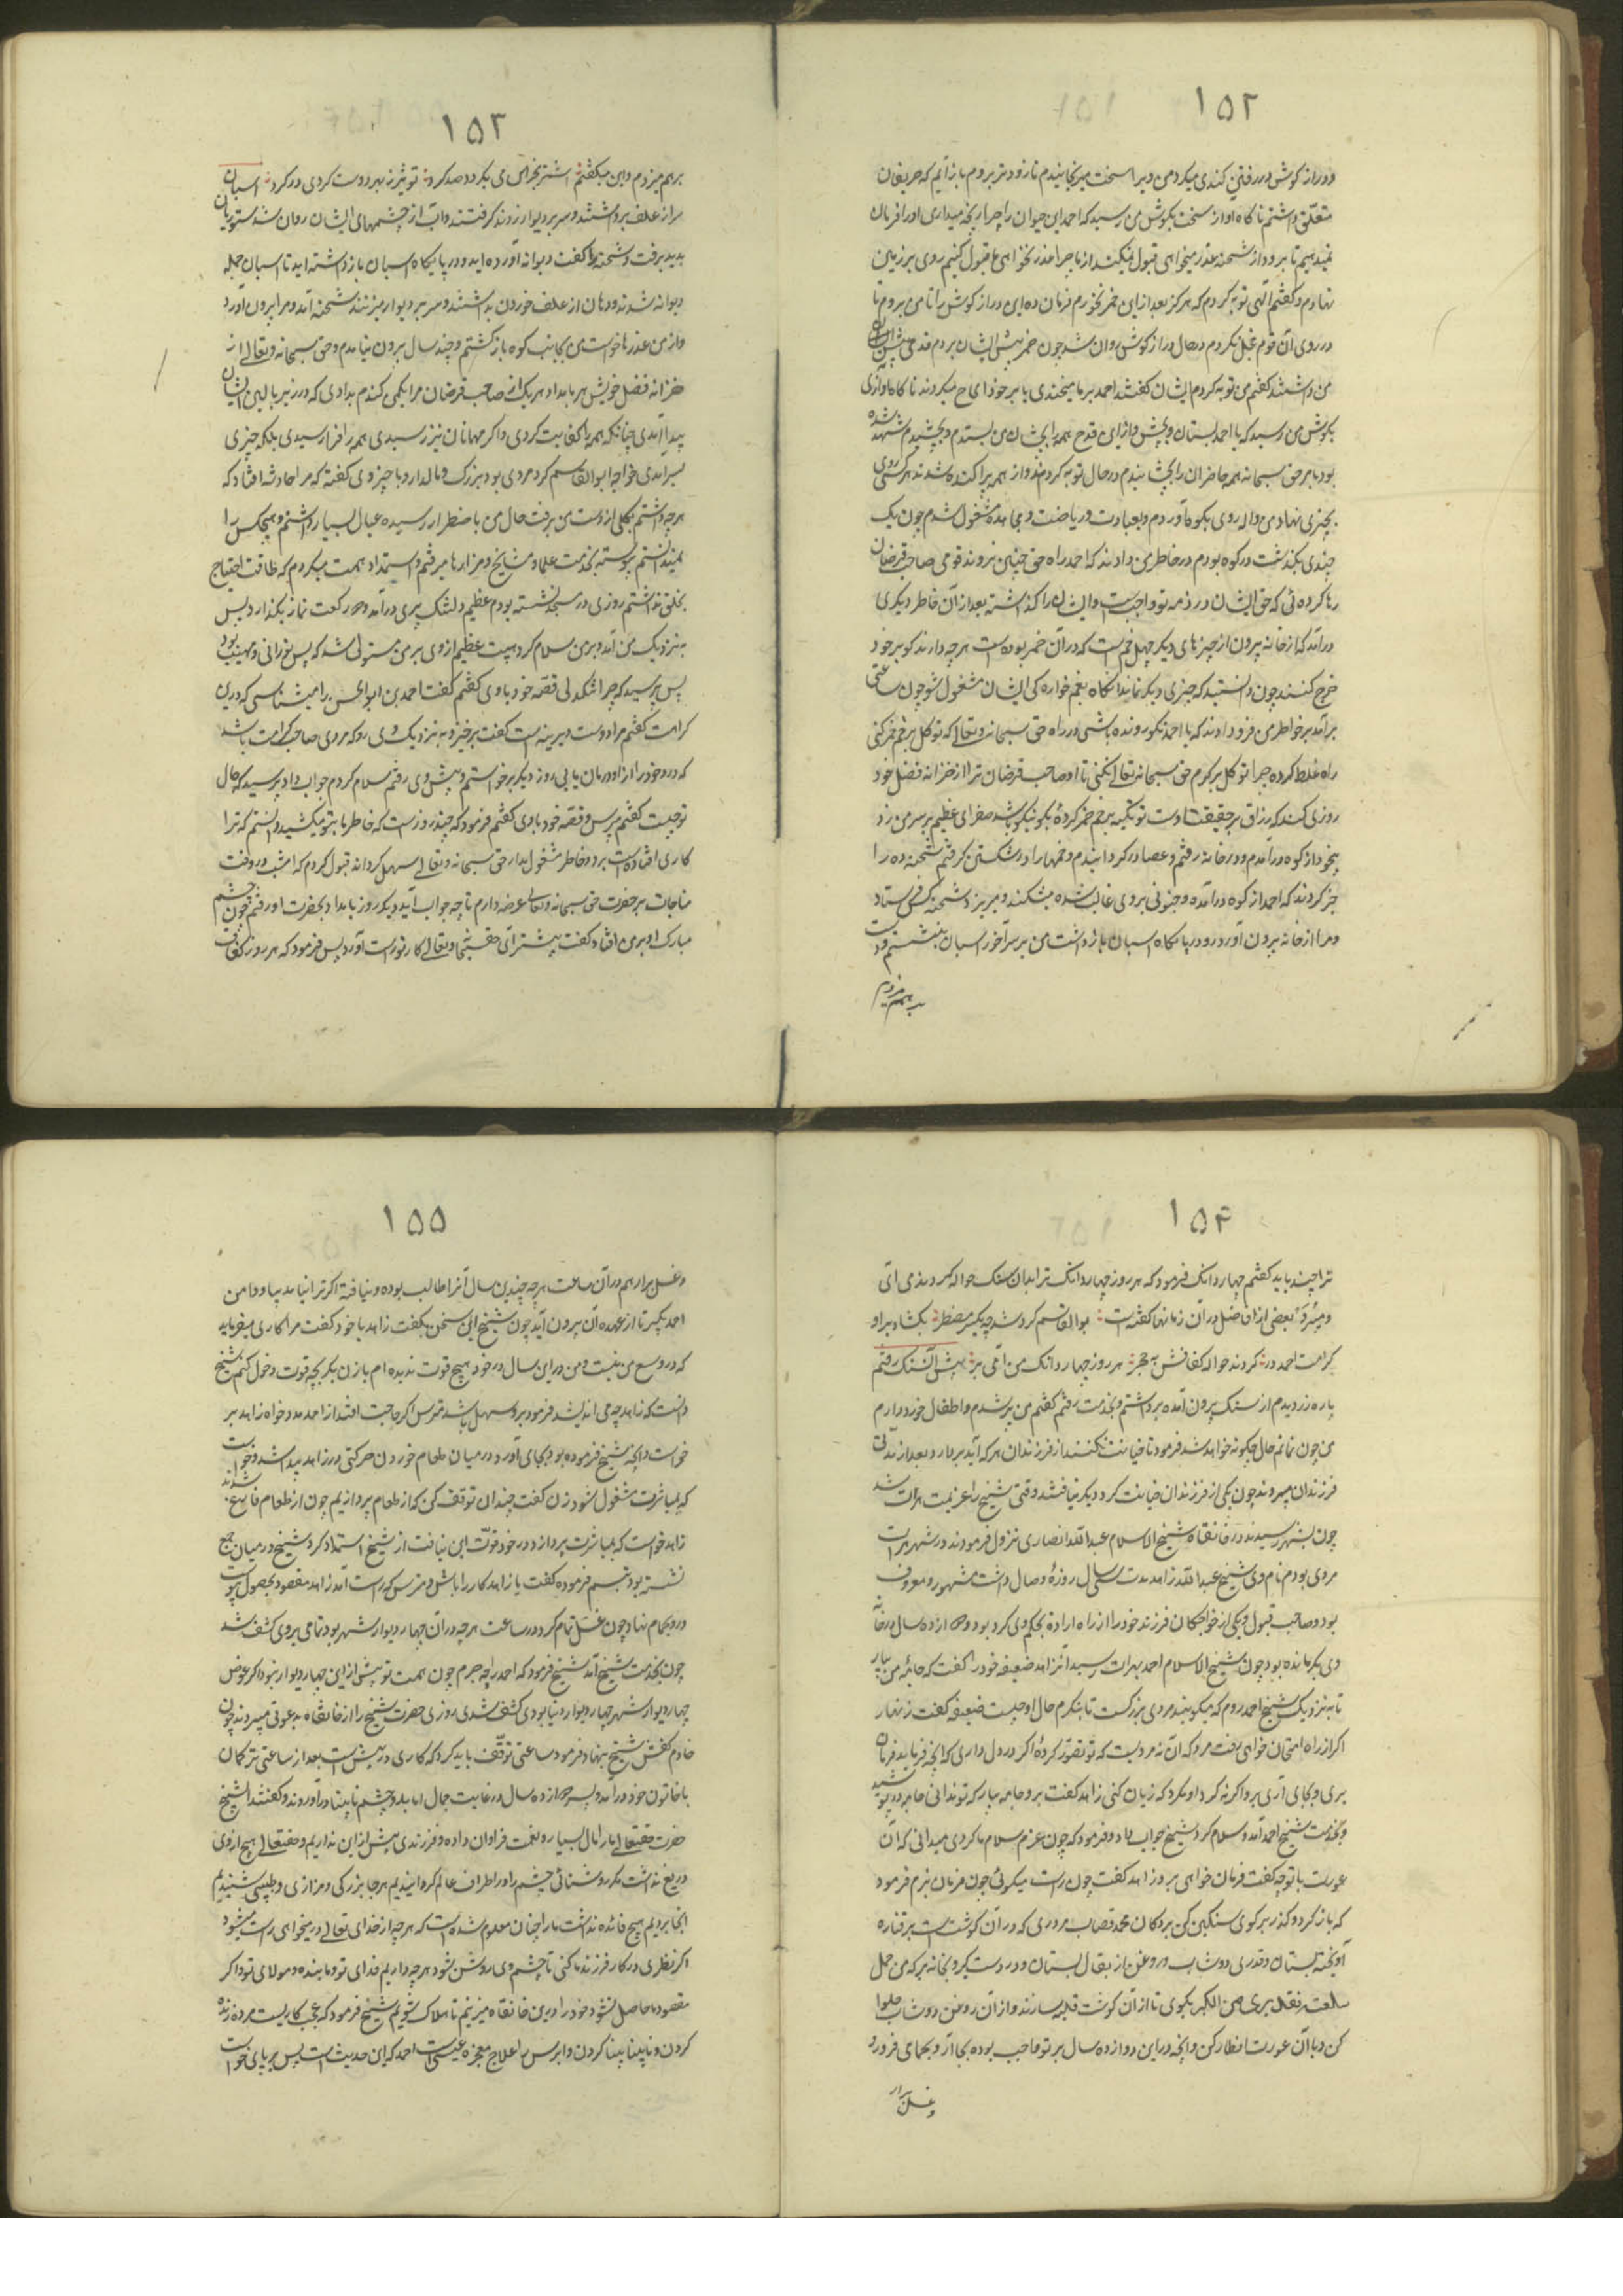 ۱۵۲
و دراز کوش در رفتن کندی میکرد من ویرا سخت میرنجانیدم تا زودتر بروم باز آیم که حریفان
متعلق داشتم ناکاه آواز سخت بکوش من رسید که احمد این حیوان را چرا رنجه میداری او را فرمان
نمیدهیم تا برود از شحنه عذر میخواهی قبول نمیکند از ما چرا عذر نخواهی تا قبول کنیم روی بر زمین
نهادم و کفتم الهی توبه کردم که هرکز بعد ازین خمر نخورم فرمان ده این دراز کوش را تا من بروم تا
در روی آن قوم خجل نکردم در حال دراز کوش روان شد چون خمر پیش ایشان بردم قدحی پیش
من داشتند کفتم من توبه کردم ایشان کفتند احمد بر ما میخندی یا بر خود الحاح میکردند ناکاه آوازی
بکوش من رسید که یا احمد بستان و بچش و ازین قدح همه را بچشان من بستدم و بچشیدم شهد شده
بود بامر حق سبحانه همه حاضران را بچشانیدم در حال توبه کردند و از هم پراکنده شدند هر کسی روی
بچیزی نهاد من واله روی بکوه آوردم و بعبادت و ریاضت و مجاهده مشغول شدم چون یک
چندی بکذشت در کوه بودم در خاطر من دادند که احمد راه حق چنین نروند قومی صاحب فرضان
رها کرده ئی که حق ایشان در ذمه تو واجبست و ایشان را کذاشته بعد از آن خاطر دیکری
درآمد که از خانه بیرون از چیزهای دیکر چهل خم است که در آن خمر بوده است هرچه دارند کو بر خود
خرج کنند چون دانستید که چیزی دیکر نماند انکاه بغم خواره کی ایشان مشغول شو چون ساعتی
برآمد بر خاطر من فرو دادند که یا احمد نکو رونده باشی در راه حق سبحانه و تعالی که توکل بر خم خمر کنی
راه غلط کرده چرا توکل بر کرم حق سبحانه تعالی نکنی تا او صاحب فرضان ترا از خزانه فضل خود
روزی کند که رزاق بر حقیقت اوست تو تکیه بر خم خمر کردهٔ نکو نیکو باشد صفرای عظیم بر سر من زد
بیخود از کوه درآمدم و در خانه رفتم و عصا در کردانیدم و خمها را در شکستن کرفتم شحنه ده را
خبر کردند که احمد از کوه درآمده و جنونی بر وی غالب شده میشکند و میریزد شحنه کس فرستاد
و مرا از خانه بیرون آورد و در پایکاه اسبان باز داشت من بر سر آخور اسبان بنشستم و دست
بر هم میزدم
۱۵۳
بر هم میزدم و این میکفتم اشتر بخراس می بکردد صد کرد تو نیز ز بهر دوست کردی در کرد اسبان
سر از علف برداشتند و سر بر دیوار زدن کرفتند و آب از چشمهای ایشان روان شد ستوربان
بدید برفت و شحنه را کفت دیوانه آورده اید و در پایکاه اسبان باز داشته اید تا اسبان جمله
دیوانه شدند و دهان از علف خوردن بداشتند و سر بر دیوار میزنند شحنه آمد و مرا بیرون آورد
و از من عذرها خواست من بجانب کوه باز کشتم و چند سال بیرون نیامدم و حق سبحانه و تعالی از
خزانه فضل خویش هر بامداد هر یک از صاحب فرضان مرا یکمن کندم بدادی که در زیر بالین ایشان
پیدا آمدی چنانکه همه را کفایت کردی و اکر مهمانان نیز رسیدی همه را فرا رسیدی بلکه چیزی
بسر آمدی خواجه ابوالقاسم کرد مردی بود بزرک و مالدار و با چیز وی کفته که مرا حادثه افتاد که
هرچه داشتم بکلی از دست من برفت حال من باضطرار رسیده عیال بسیار داشتم و هیچکس را
نمیدانستم پیوسته بخدمت علما و مشایخ و مزارها میرفتم و استمداد همت میکردم که طاقت احتیاج
بخلق نداشتم روزی در مسجد نشسته بودم عظیم دلتنک پیری درآمد و دو رکعت نماز بکذارد پس
به نزدیک من آمد و بر من سلام کرد هیبت عظیم از وی بر من مستولی شد که پس نورانی و مهیب بود
پس پرسید که چرا تنکدلی قصه خود باوی کفتم کفت احمد بن ابوالحسن را میشناسی که درین
کرامت کفتم مرا دوست دیرینه است کفت برخیز و به نزدیک وی رو که مردی صاحب کرامت باشد
که درد خود را از او درمان یابی روز دیکر برخواستم و پیش وی رفتم سلام کردم جواب داد پرسید که حال
تو چیست کفتم مپرس و قصه خود باوی کفتم فرمود که چند روز است که خاطر ما بتو میکشید دانستم که ترا
کاری افتاده است برو و خاطر مشغول مدار حق سبحانه و تعالی سهل کرداند قبول کردم که امشب در وقت
مناجات بر حضرت حق سبحانه و تعالی عرضه دارم تا چه جواب آید دیکر روز بامداد بحضرت او رفتم چون چشم
مبارک او بر من افتاد کفت پیشتر آی حقتعالی کار تو راست آورد پس فرمود که هر روز کفاف
۱۵۴
ترا چند باید کفتم چهار دانک فرمود که هر روز چهار دانک ترا بدان سنک حواله کردند می آئی
و میبری بعضی از افاضل در آن زمانها کفته است بوالقاسم کرد شد چو یکسر مضطر بکشاد بر او
کرامت احمد در کردند حواله کفافش به حجر هر روز چهار دانک من آئی بر پیش آن سنک رفتم
پاره زر دیدم از سنک بیرون آمده برداشتم و بخدمت رفتم کفتم من پیر شدم و اطفال خورد دارم
من چون نمانم حال چکونه خواهد شد فرمود تا خیانت نکنند از فرزندان هر که آید بردارد بعد از مدتی
فرزندان میبردند چون یکی از فرزندان خیانت کرد دیکر نیافتند وقتی شیخ را عزیمت هرات شد
چون بشهر رسیدند در خانقاه شیخ الاسلام عبدالله انصاری نزول فرمودند در شهر هرات
مردی بود نام وی شیخ عبدالله زاهد مدت سی سال روزهٔ وصال داشت مشهور و معروف
بود و صاحب قبول و یکی از خواجکان فرزند خود را از راه ارادة بحکم وی کرد بود و دوازده سال در خانه
وی بکر مانده بود چون شیخ الاسلام احمد بهرات رسید آن زاهد ضعیفه خود را کفت که جامهٔ من بیار
تا به نزدیک شیخ احمد روم که میکویند مردی بزرکست تا بنکرم حال او چیست ضعیفه کفت زنهار
اکر از راه امتحان خواهی رفت مرو که آن نه مردیست که تو تصور کردهٔ اکر در دل داری که آنچه فرماید فرمان
بری و بجای آری برو اکر نه کرد او مکرد که زیان کنی زاهد کفت برو جامه بیار که تو ندانی جامه در پوشید
و بخدمت شیخ احمد آمد و سلام کرد شیخ جواب داد و فرمود که چون عزم سلام ما کردی میدانی که آن
عورت با تو چه کفت فرمان خواهی بر و زاهد کفت چون راست میکوئی چون فرمان نبرم فرمود
که باز کرد و کذر بر کوی سنکین کن بر دکان محمد قصاب مروزی که در آن کوشت است بر قناره
آویخته بستان و قدری دوشاب و روغن از بقال بستان و در دست کیر و بخانه بر که من حمل
سلعته فقد بری من الکبر بکوی تا از آن کوشت قلیه سازند و از آن روغن دوشاب حلوا
کن و با آن عورت افطار کن و آنچه در این دوازده سال بر تو واجب بوده بجا آر و بحمامی فرو رو
و غسل برار
۱۵۵
و غسل برار هم در آن ساعت هرچه چندین سال آنرا طالب بوده و نیافتهٔ اکر ترا نیامد بیا و دامن
احمد بکیر تا از عهده آن بیرون آید چون شیخ این سخن بکفت زاهد با خود کفت مرا کاری میفرماید
که در وسع من نیست و من در این سال در خود هیچ قوت ندیده ام با زن بکر بچه قوت دخول کنم شیخ
دانست که زاهد چه می اندیشد فرمود برو سهل باشد مترس اکر حاجت افتد از احمد مدد خواه زاهد بر
خواست و آنچه شیخ فرموده بود بجای آورد در میان طعام خوردن حرکتی در زاهد پیدا شد و خواست
که بمباشرت مشغول شود زن کفت چندان توقف کن که از طعام بپردازیم چون از طعام فارغ شدند
زاهد خواست که بمباشرت پردازد در خود قوّت این نیافت از شیخ استمداد کرد شیخ در میان جمع
نشسته بود تبسم فرموده کفت یا زاهد کار را باش و مترس که راست آمد زاهد مقصود بحصول پیوست
در و بحمام نهاد چون غسل تمام کرد در ساعت هرچه در آن چهار دیوار شهر بود تمامی بر وی کشف شد
چون بخدمت شیخ آمد شیخ فرمود که احمد را چه جرم چون همت تو بیش از این چهار دیوار نبود اکر عوض
چهار دیوار شهر چهار دیوار دنیا بودی کشف شدی روزی حضرت شیخ را از خانقاه بدعوتی میبردند چون
خادم کفش شیخ بنهاد فرمود ساعتی توقف باید کرد که کاری در پیش است بعد از ساعتی ترکمان
با خاتون خود درآمد و پسر دوازده ساله در غایت جمال اما بدو چشم نابینا درآوردند و کفتند ای شیخ
حضرت حقتعالی ما را مال بسیار و نعمت فراوان داده و فرزندی بیش از این نداریم و حقتعالی هیچ از وی
دریغ نداشت مکر روشنائی چشم را و را در اطراف عالم کردانیدیم هر جا بزرکی و مزاری و طبیبی شنیدیم
انجا بردیم هیچ فائده نداشت ما را چنان معلوم شده است که هرچه از خدای تعالی درمیخواهی راست میشود
اکر نظری در کار فرزند ما کنی تا چشم وی روشن شود هرچه داریم فدای تو و ما بنده و مولای تو و اکر
مقصود ما حاصل نشود خود را درین خانقاه میزنیم تا هلاک شویم شیخ فرمود که عجب کاریست مرده زنده
کردن و نابینا بینا کردن و ابرص را علاج معجزه عیسی است احمد که این حدیث است پس بر پای خواست